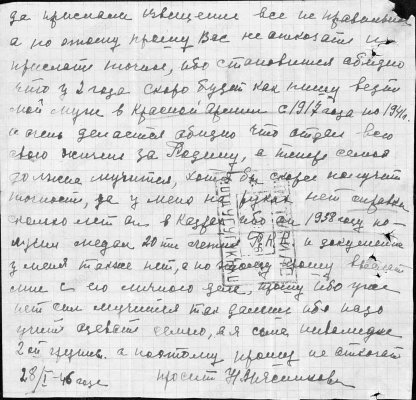 да прислали извещение все не правильно
а поэтому прошу Вас не отказать и
прислать точное, ибо становится обидно
что у 2 года скоро будет как пишу везде
мой муж в Красной Армии с 1917 года по 194
и очень делается обидно что отдал всю
свою жизнь за Родину, а теперь семья
должна мучится, хотя бы скорее получить
точность, да у меня на руках нет справки
сколько лет он в кадрах ибо он 1938 году по
лучил медаль 20 ти летия РККА и документа
у меня также нет, а поэтому прошу выслать
мне с его личного дела, прошу ибо уже
нет сил мучится так далее ибо надо
учить одевать семью, а я сама инвалид
2ой группы. а поэтому прошу не отказать
28/I-46 года просит